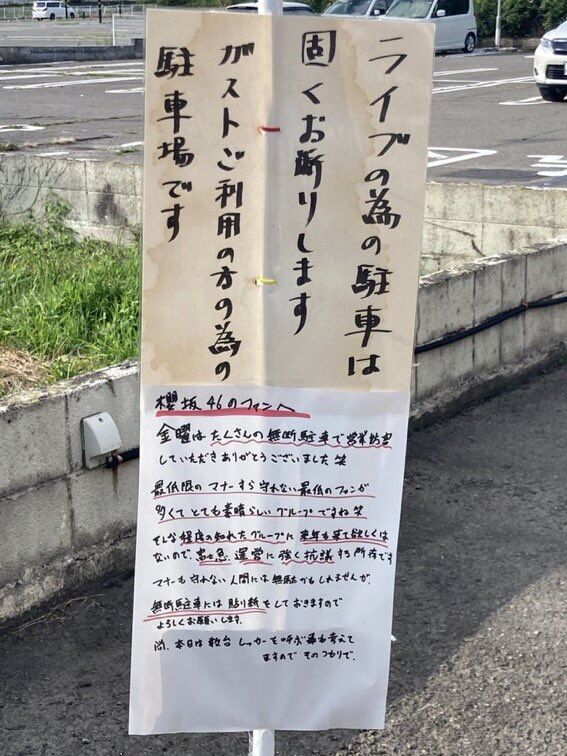 ライブの為の駐車は
固くお断りします
ガストご利用の方の為の
駐車場です
櫻坂46のファンへ
金曜はたくさんの無断駐車で営業妨害
していただきありがとうございました笑
最低限のマナーすら守れない最低のファンが
多くてとても素晴らしいグループですね笑
そんな程度の知れたグループに来年も来て欲しくは
ないので、富士急、運営に強く抗議する所存です
マナーも守れない人間には無駄かもしれませんが
無断駐車には貼り紙をしておきますので
よろしくお願いします。
尚、本日は数台レッカーを呼ぶ事も考えて
ますのでそのつもりで、